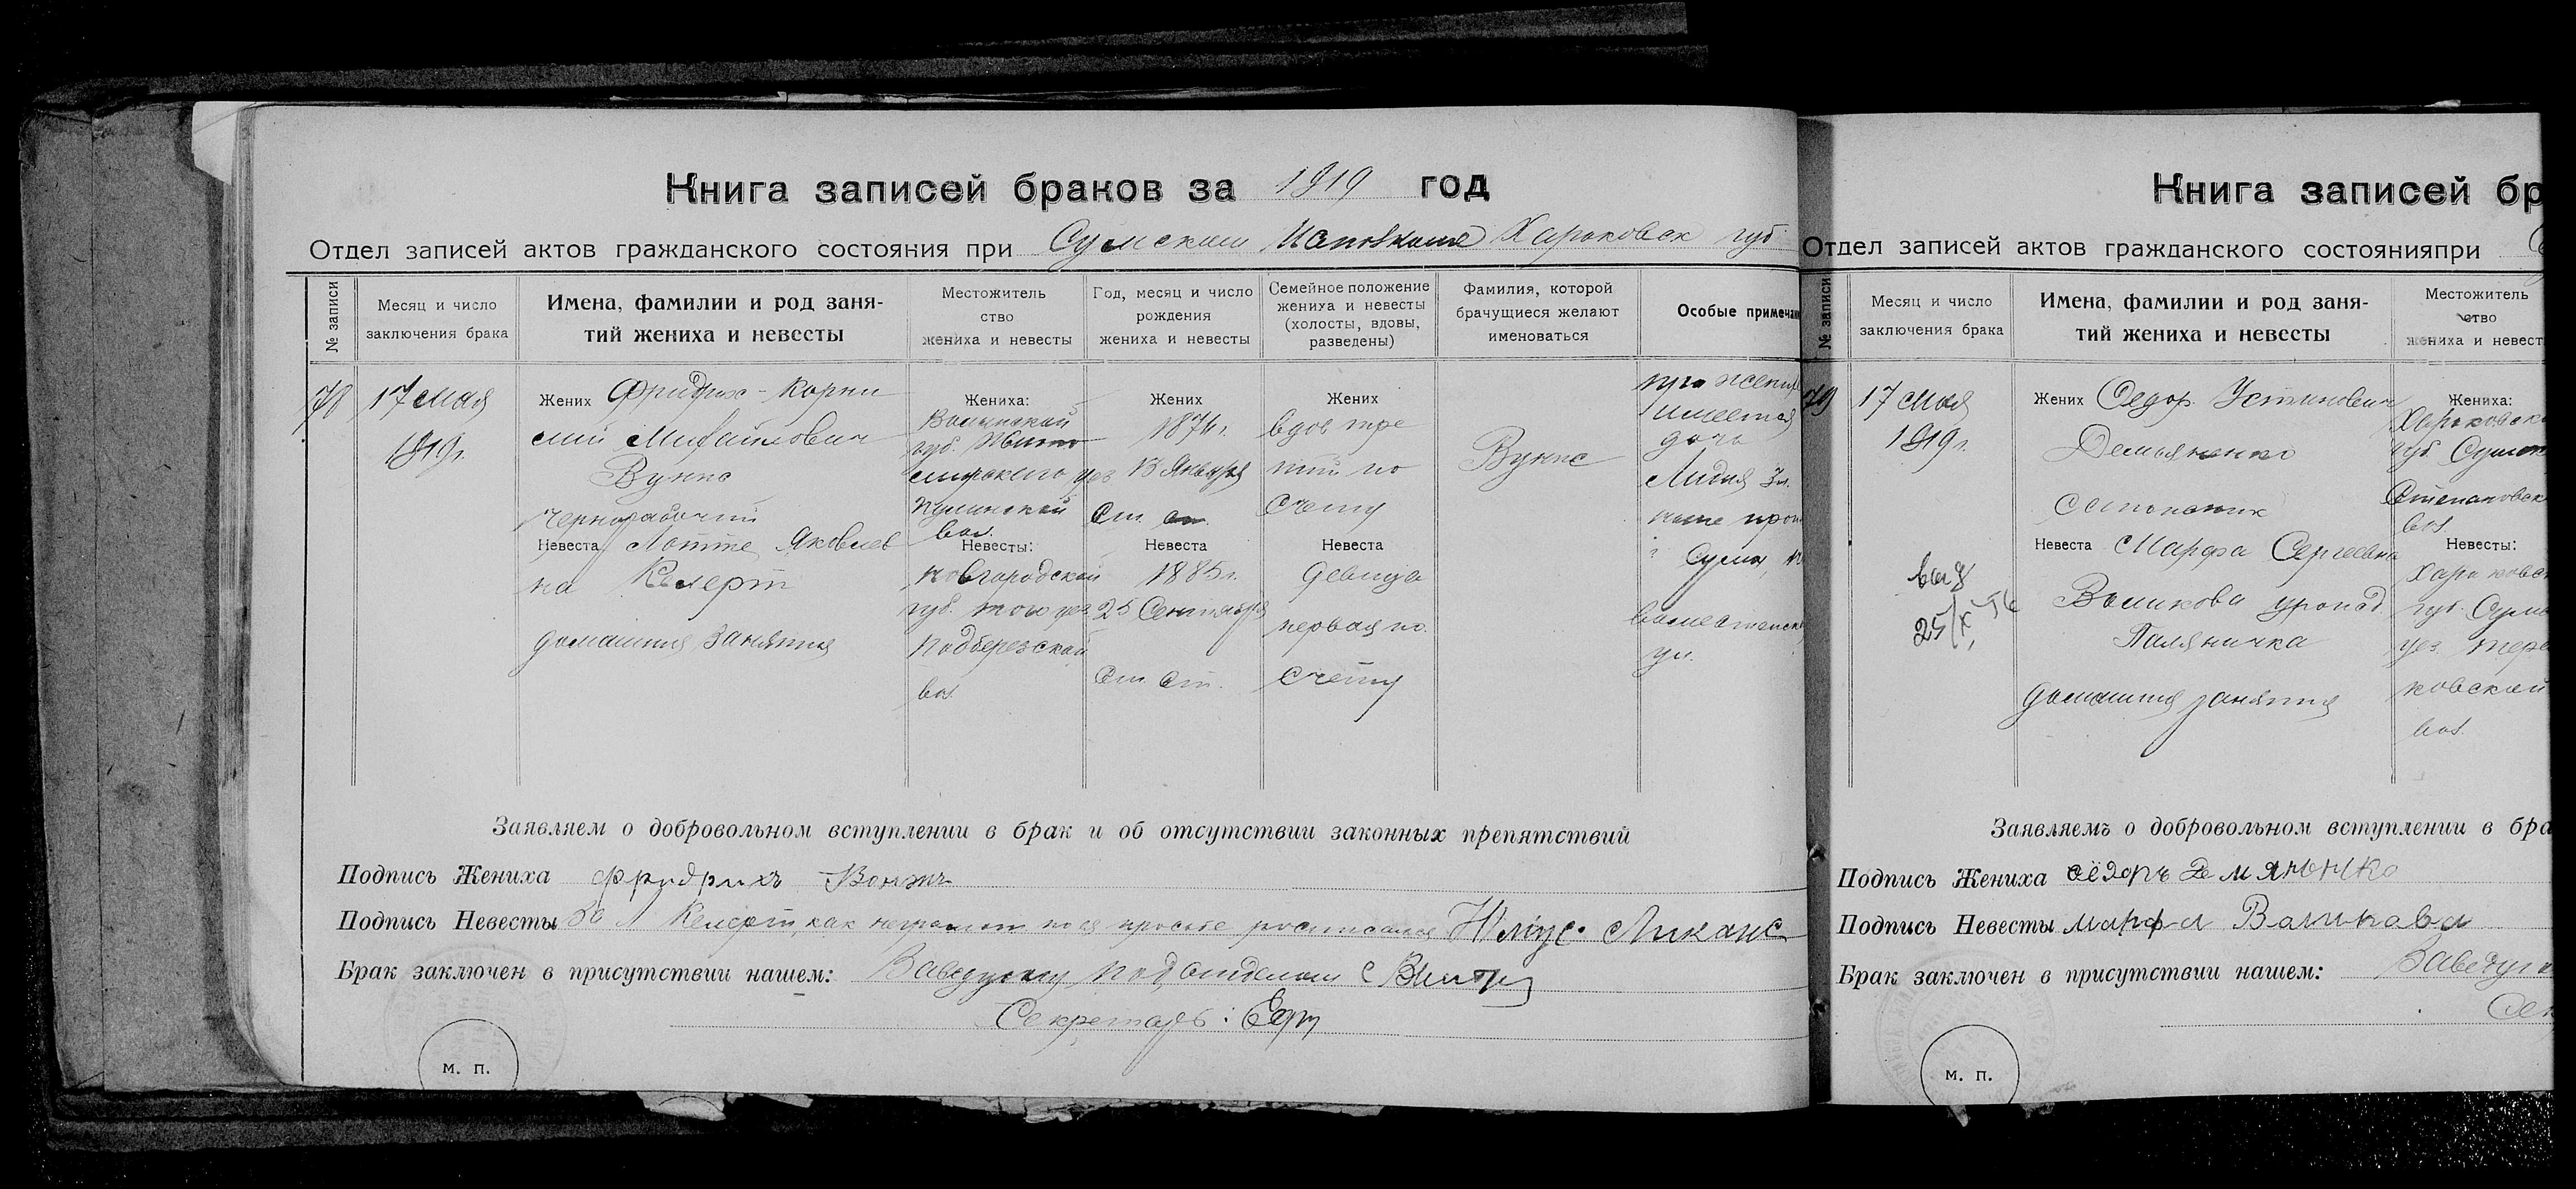 Книга записей браков за 1919 год
Отдел записей актов гражданского состояния при Сумском Исполкоме Харьковск губ.
№ записи
Месяц и число
заключения брака
Имена, фамилии и род заня-
тий жениха и невесты
Местожитель
ство
жениха и невесты
Год, месяц и число
рождения
жениха и невесты
Семейное положение
жениха и невесты
(холосты, вдовы,
разведены)
Фамилия, которой
брачущиеся желают
именоваться
Особые примечан
78
17 Мая
1919г.
Жених Фридрих-Корни
лий Михайлович
Вункс
Чернорабочий
Невеста Лотте Яковлев
на Келерт
домашния занятия
Жениха:
Волынской
губ. Жито
мирского уез
Кулинской
вол.
Невесты:
Новгородской
губ. того уез.
Подберезской
вол.
Жених
1874г.
13 Января
Ст. ст.
Невеста
1885г.
25 Сентября
Ст. ст.
Жених
вдов тре
тий по
счету
Невеста
девица
первая по
счету
Вункс
имеется
дочь
Лидия 3м.
Сумы,
ул.
Заявляем о добровольном вступлении в брак и об отсутствии законных препятствий
Подпись Жениха Фридрихъ
Подпись Невесты За Л Келерт, как неграмот по ея просьбе росписался
Брак заключен в присутствии нашем: Заведующ подотделом
Секретарь:
м. п.
Книга записей бр
Отдел записей актов гражданского состоянияпри
№ записи
Месяц и число
заключения брака
Имена, фамилии и род заня-
тий жениха и невесты
Местожитель
ство
жениха и невест
79
17 Мая
1919г.
25/X 56
Жених Федор Устинович
Демьяненко
Сапожник
Невеста Марфа Сергеевна
Великова урожд.
Паляничка
домашния занятия
Жениха:
Харьковско
губ. Сумск
Степановск
вол.
Невесты:
Харьковс
губ. Сумс
уез.
ковской
вол.
Заявляемъ о добровольном вступлении в бра
Подпись Жениха Фёдоръ Демяненко
Подпись Невесты Марфа Великава
Брак заключен в присутствии нашем: Заведую
Сек
м. п.